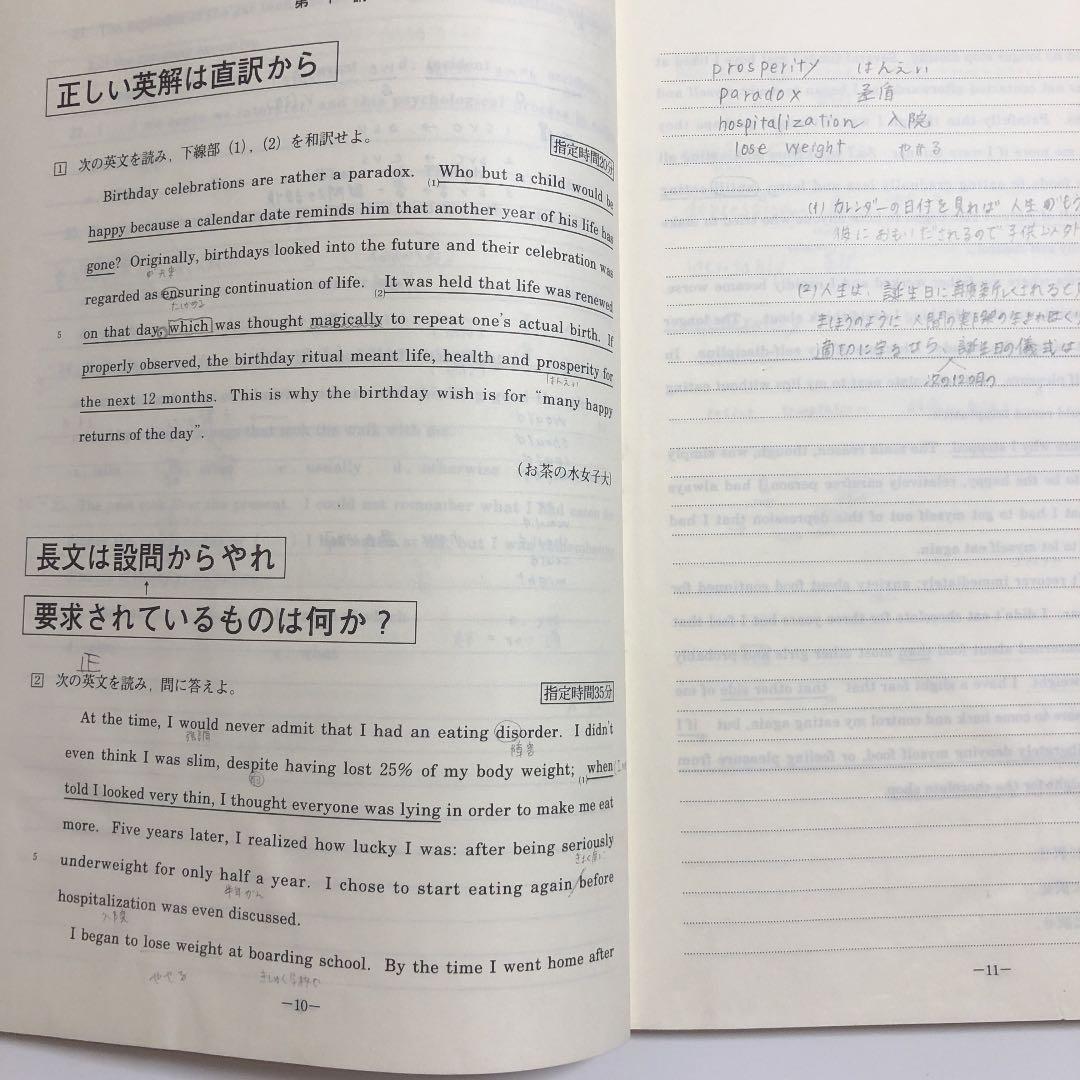 第
正しい英解は直訳から
1 次の英文を読み, 下線部 (1), (2) を和訳せよ。
指定時間20分
Birthday celebrations are rather a paradox. (1)Who but a child would be
happy because a calendar date reminds him that another year of his life has
gone? Originally, birthdays looked into the future and their celebration was
regarded as ensuring continuation of life. (2)It was held that life was renewed
たしかめる
5 on that day, which was thought magically to repeat one's actual birth. If
properly observed, the birthday ritual meant life, health and prosperity for
はんえい
the next 12 months. This is why the birthday wish is for "many happy
returns of the day".
(お茶の水女子大)
長文は設問からやれ
↑
要求されているものは何か？
正
2 次の英文を読み, 問に答えよ。
指定時間35分
At the time, I would never admit that I had an eating disorder. I didn't
強調 障害
even think I was slim, despite having lost 25% of my body weight; (1)when
told I looked very thin, I thought everyone was lying in order to make me eat
more. Five years later, I realized how lucky I was: after being seriously
5 underweight for only half a year. I chose to start eating again before
hospitalization was even discussed.
入院
I began to lose weight at boarding school. By the time I went home after
やせる
—10—
prosperity はんえい
paradox 矛盾
hospitalization 入院
lose weight やせる
(1) カレンダーの日付を見れば 人生の
彼におもいだされるので子供以外
(2)人生は、誕生日に再度新しくされると
まほうのように 人間の実際の生まれ
適切に守るなら 誕生日の儀式は
次の12ヵ月の
—11—